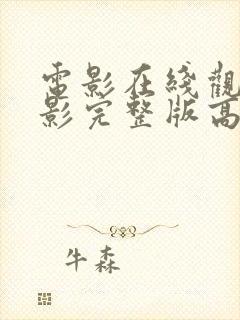 電影在綫觀
影完整版高
牛森